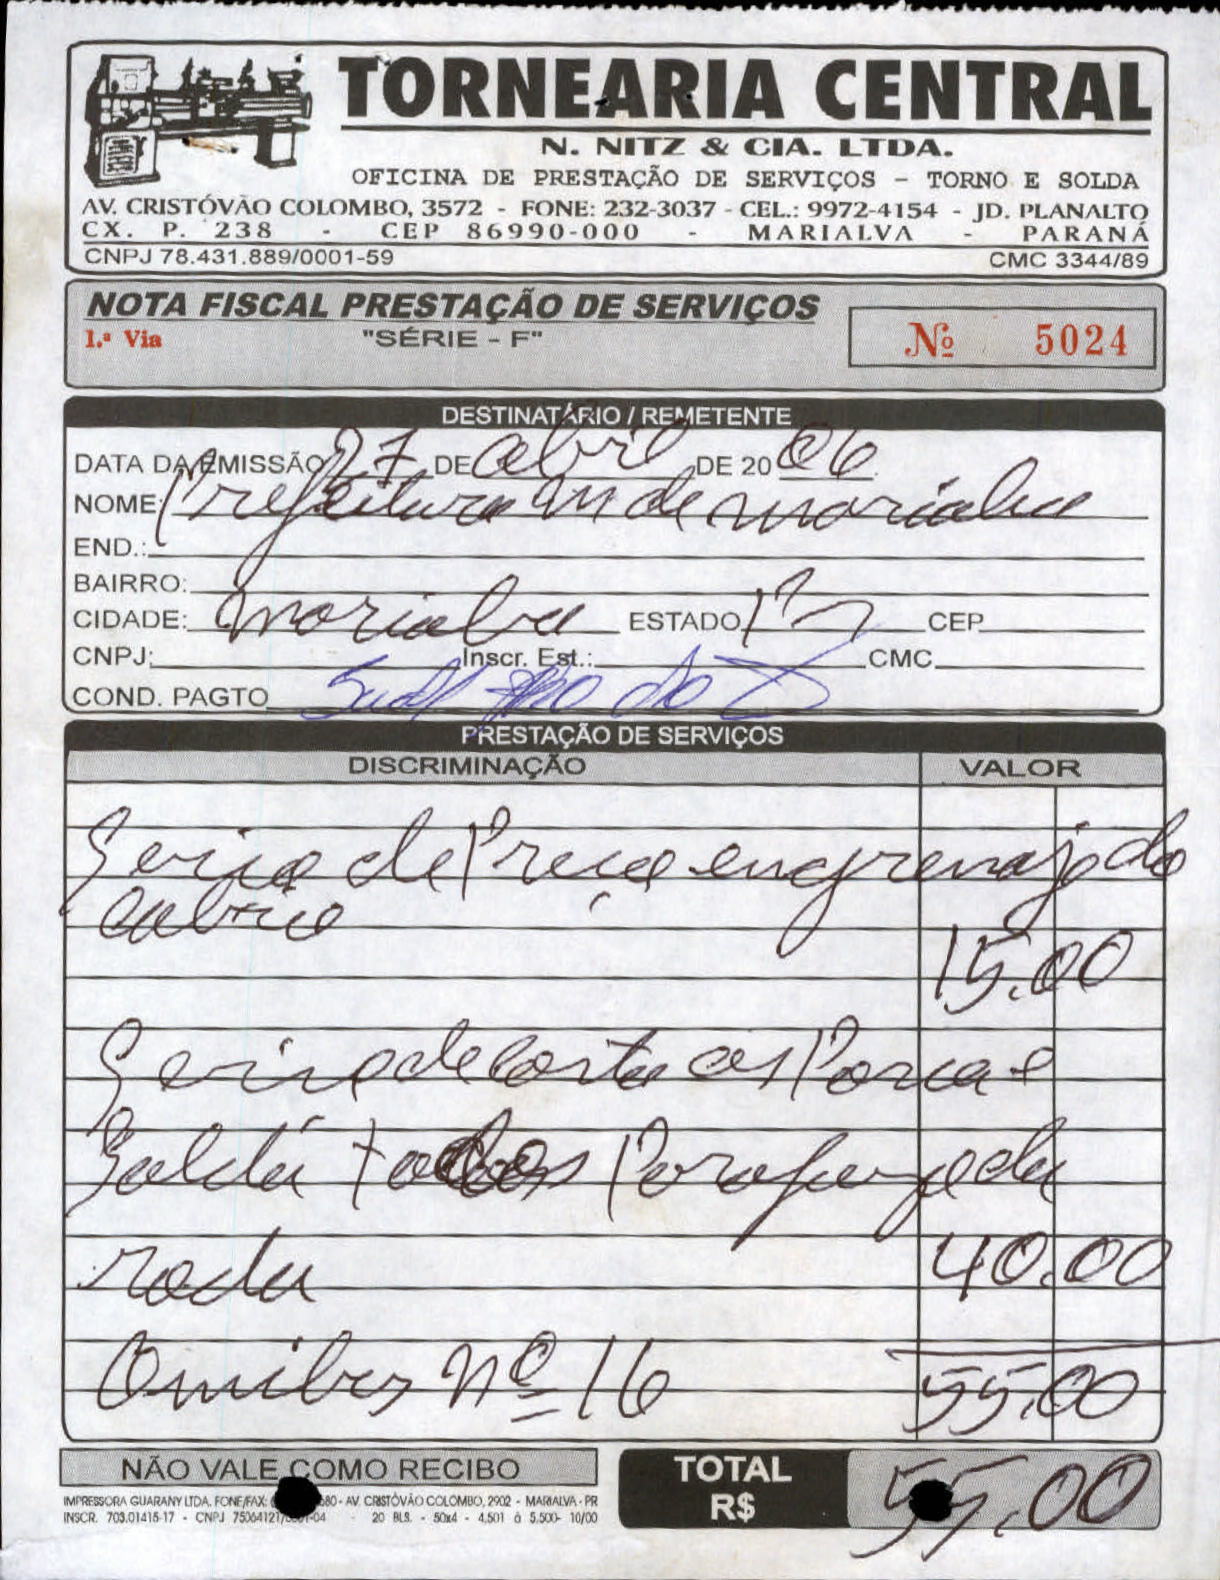 TORNEARIA CENTRAL
N. NITZ & CIA. LTDA.
OFICINA DE PRESTAÇÃO DE SERVIÇOS - TORNO E SOLDA
AV. CRISTÓVÃO COLOMBO, 3572 - FONE: 232-3037 - CEL.: 9972-4154 - JD. PLANALTO
CX. P. 238 - CEP 86990-000 - MARIALVA - PARANÁ
CNPJ 78.431.889/0001-59 CMC 3344/89
NOTA FISCAL PRESTAÇÃO DE SERVIÇOS
1.ª Via "SÉRIE - F" Nº 5024
DESTINATÁRIO / REMETENTE
DATA DA EMISSÃO 27 DE abril DE 20 06
NOME: Prefeitura M de marialva
END.:
BAIRRO:
CIDADE: marialva ESTADO Pr CEP
CNPJ: Inscr. Est.: CMC
COND. PAGTO
PRESTAÇÃO DE SERVIÇOS
DISCRIMINAÇÃO VALOR
de engrenaje do
15,00
de as Porca e
Solda todos Parafu da
roda 40.00
Onibus nº 16 55,00
NÃO VALE COMO RECIBO TOTAL R$ 55,00
IMPRESSORA GUARANY LTDA. FONE/FAX: - AV. CRISTÓVÃO COLOMBO, 2902 - MARIALVA - PR
INSCR. 703.01415-17 - CNPJ - 20 BLS. - 50x4 - 4.501 à 5.500- 10/00